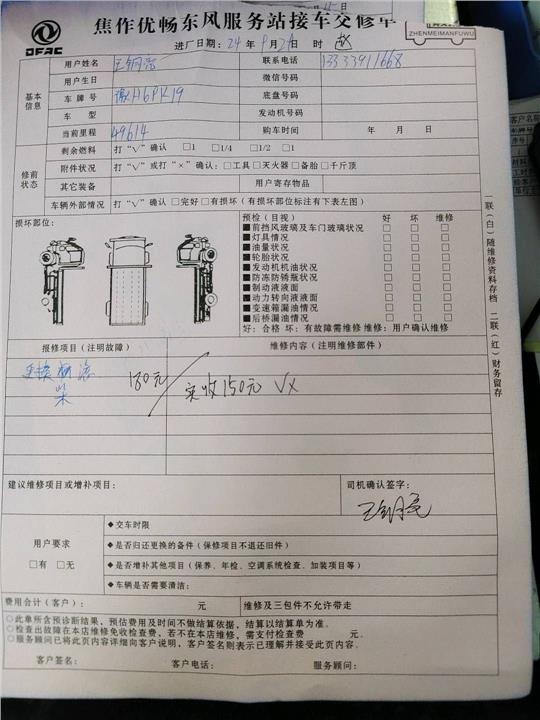 焦作优畅东风服务站接车交修单
DFAC
ZHENMEIMANFUWU
进厂日期：24 年 9月24日 时 赵
基本信息
用户姓名 联系电话 13333911668
用户生日 微信号码
车牌号 豫H6PK19 底盘号码
车 型 发动机号码
当前里程 49614 购车时间 年 月 日
修前状态
剩余燃料 打“√”确认 □1 □1/4 □1/2 □1
附件状况 打“√”或打“×”确认：□工具□灭火器□备胎□千斤顶
其它装备 用户寄存物品
车辆外部情况 打“√”确认 □完好 □有损坏（有损坏部位标注有下表左图）
损坏部位：
预检（目视） 好 坏 维修
■前挡风玻璃及车门玻璃状况 □ □ □
■灯具情况 □ □ □
■油量状况 □ □ □
■轮胎状况 □ □ □
■发动机机油状况 □ □ □
■防冻防锈瓶状况 □ □ □
■制动液液面 □ □ □
■动力转向液液面 □ □ □
■变速箱漏油情况 □ □ □
■后桥漏油情况 □ □ □
好：合格 坏：有故障需维修 维修：用户确认维修
报修项目（注明故障） 维修内容（注明维修部件）
更换 180元 实收150元 VX
柴
建议维修项目或增补项目： 司机确认签字：
用户要求
□有 □无
◆交车时限
◆是否归还更换的备件（保修项目不退还旧件）
◆是否增补其他项目（保养、年检、空调系统检查、加装项目等）
◆车辆是否需要清洁：
费用合计（客户）： 元 维修及三包件不允许带走
○此单所含预诊断结果，预估费用及时间不做结算依据，结算以结算单为准。
○检查出故障在本店维修免收检查费，若不在本店维修，需支付检查费 元。
○服务顾问已将此页内容详细向客户说明，客户签名则表示已理解并接受此页内容。
客户签名： 客户电话： 服务顾问：
一联（白）随维修资料存档 二联（红）财务留存